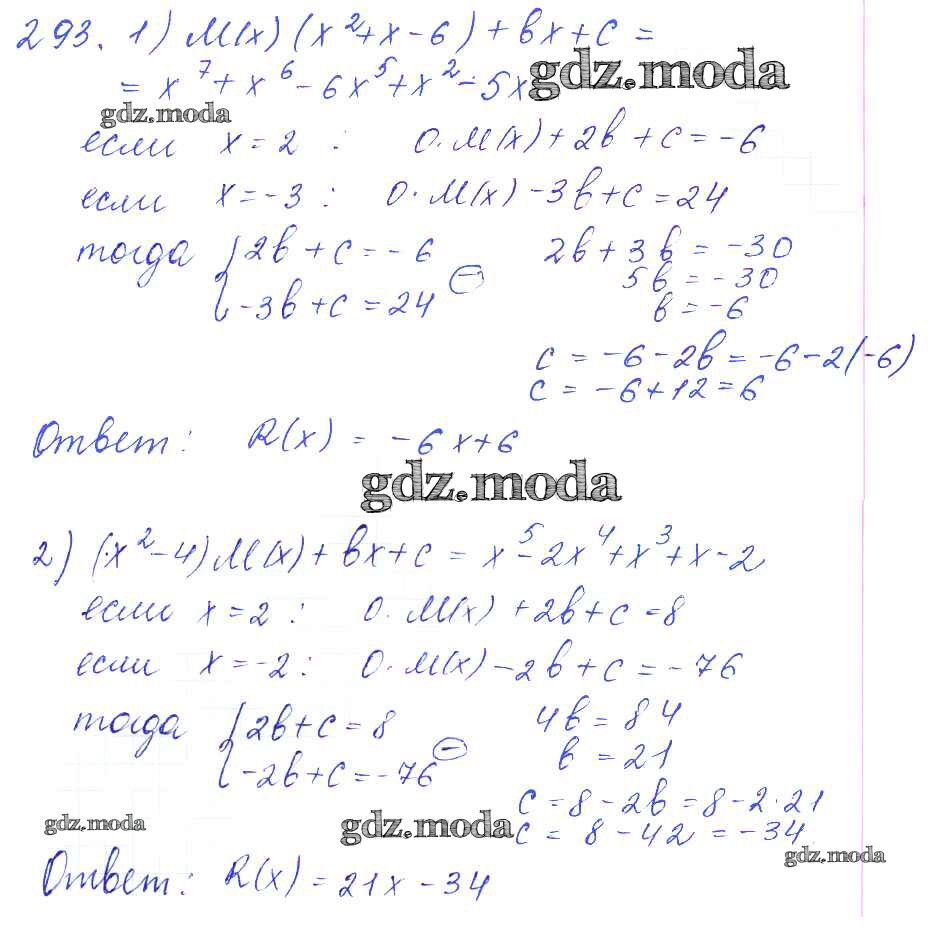 293. 1) M(x) (x²+x-6)+bx+c=
= x⁷+x⁶-6x⁵+x²-5x gdz.moda
gdz.moda
если x=2 : 0·M(x)+2b+c=-6
если x=-3: 0·M(x)-3b+c=24
тогда {2b+c=-6 2b+3b=-30
-3b+c=24 ⊖ 5b=-30
b=-6
c=-6-2b=-6-2(-6)
c=-6+12=6
Ответ: R(x) = -6x+6
gdz.moda
2) (x²-4)M(x)+bx+c=x⁵-2x⁴+x³+x-2
если x=2: 0·M(x)+2b+c=8
если x=-2: 0·M(x)-2b+c=-76
тогда {2b+c=8 4b=84
-2b+c=-76 ⊖ b=21
c=8-2b=8-2·21
gdz.moda gdz.moda c=8-42=-34
gdz.moda
Ответ: R(x)=21x-34